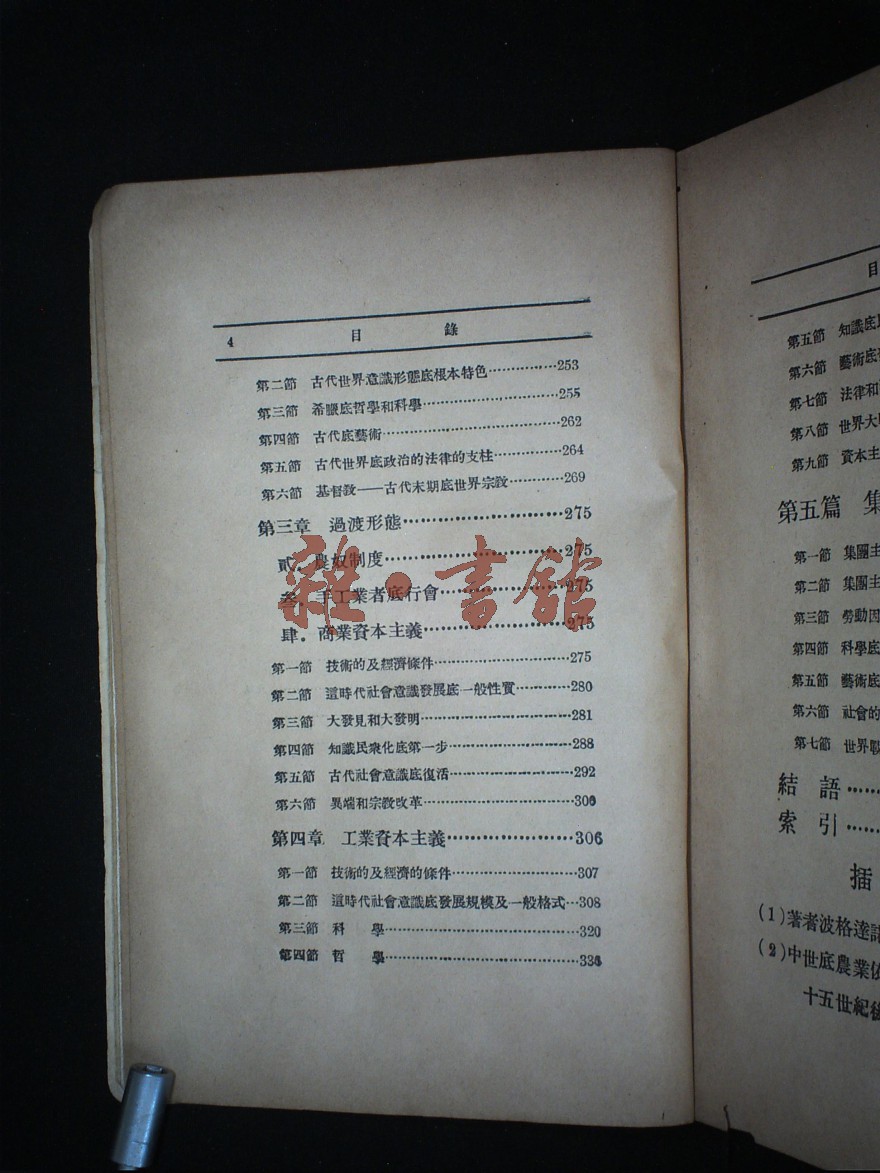 4 目 錄
第二節 古代世界意識形態底根本特色…………253
第三節 希臘底哲學和科學…………255
第四節 古代底藝術…………262
第五節 古代世界底政治的法律的支柱…………264
第六節 基督敎——古代末期底世界宗敎…………269
第三章 過渡形態…………275
貳．農奴制度…………275
叁．手工業者底行會…………275
肆．商業資本主義…………275
第一節 技術的及經濟條件…………275
第二節 這時代社會意識發展底一般性質…………280
第三節 大發見和大發明…………281
第四節 知識民衆化底第一步…………288
第五節 古代社會意識底復活…………292
第六節 異端和宗敎改革…………300
第四章 工業資本主義…………306
第一節 技術的及經濟的條件…………307
第二節 這時代社會意識底發展規模及一般格式…308
第三節 科 學…………320
第四節 哲 學…………334
雜·書館
目
第五節 知識底
第六節 藝術底
第七節 法律和
第八節 世界大
第九節 資本主
第五篇 集
第一節 集團主
第二節 集團主
第三節 勞動因
第四節 科學底
第五節 藝術底
第六節 社會的
第七節 世界
結 語……
索 引……
插
(1)著者波格達諾
(2)中世底農業
十五世紀